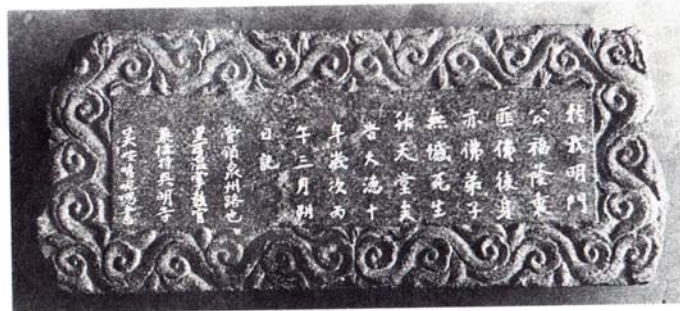 於我明門
公福蔭裏
匪佛後身
亦佛弟子
無憾死生
升天堂矣
旹大德十
年歲次丙
午三月朔
日記
管領泉州路也
里可溫掌教官
兼住持興明寺
吳咹哆呢嗯書